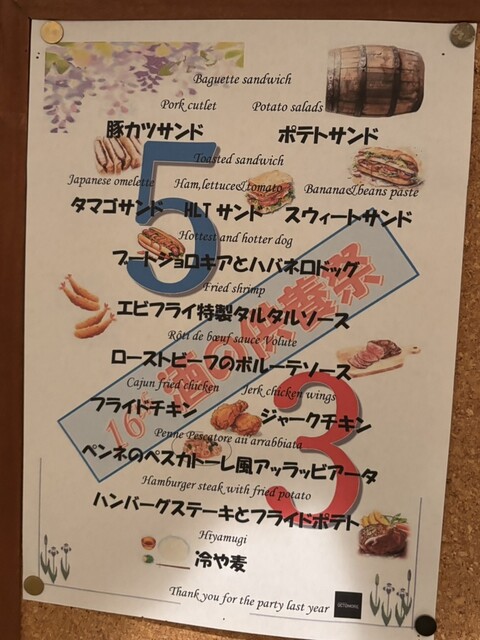 Baguette sandwich
Pork cutlet Potato salads
豚カツサンド ポテトサンド
Toasted sandwich
Japanese omelette Ham,lettuce&tomato Banana&beans paste
タマゴサンド HLTサンド スウィートサンド
Hottest and hotter dog
ブートジョロキアとハバネロドッグ
Fried shrimp
エビフライ特製タルタルソース
Rôti de bœuf sauce Volute
ローストビーフのボルーテソース
Cajun fried chicken Jerk chicken wings
フライドチキン ジャークチキン
Penne Pescatore au arrabbiata
ペンネのペスカトーレ風アッラッビアータ
Hamburger steak with fried potato
ハンバーグステーキとフライドポテト
Hiyamugi
冷や麦
Thank you for the party last year
5
3
16th 酒の供養祭